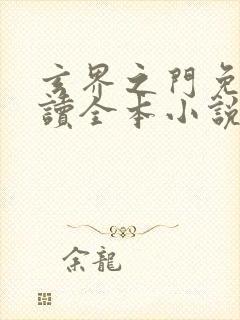 玄界之門免
讀全本小說
余龍